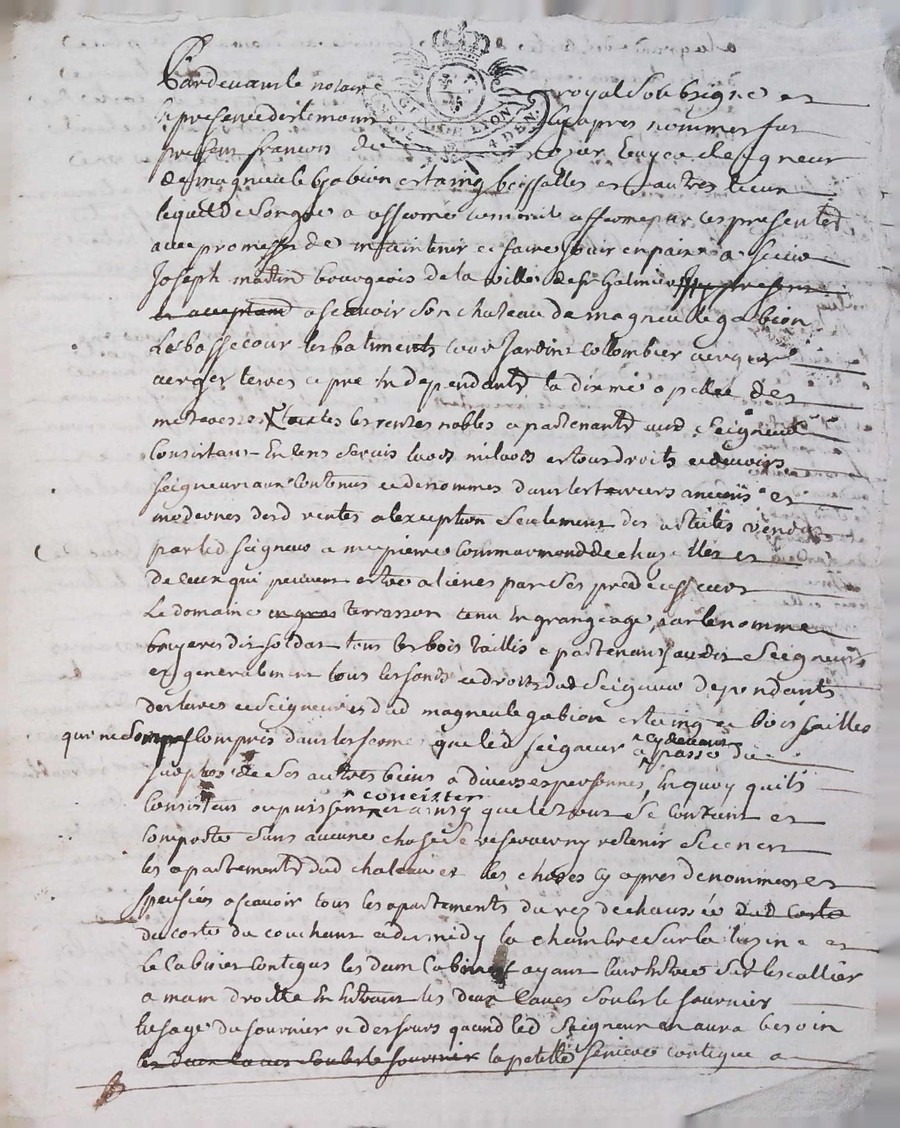 Pardevant le notaire royal soubsigne et
en presence des temoins cy apres nommes fut
present francois de seigneur
de magneu le gabion estaing boissalles et autres lieux
lequel de son gre a afferme comme il afferme par ces presentes
avec promesse de maintenir et faire jouir en paix a sieur
Joseph mattin bourgeois de la ville de st Galmier icy present
et acceptant a scavoir son chateau de magneu le gabion
Les basse cour les batiments cour jardins collombier
verger terres et pre en dependants la dixme apellee des
et toutes les rentes nobles apartenants aud seigneur
Consistant en cens servis laods milaods et tous droits et devoirs
seigneuriaux contenus et denommes dans les terriers anciens et
modernes desd rentes a lexception seulement des articles vendus
par led seigneur a me pierre Commarmond de chazelles et
de ceux qui peuvent estre alienes par ses predecesseurs
Le domaine en gros terrasson tenu en grangeage par le nomme
bruyeres dit soldat tous les bois taillis apartenants audit Seigneur
et generalement tous les fonds et droits dud Seigneur dependants
des terres et seigneuries dud magneu le gabion estaing et boissailles
qui ne sont pas compris dans les ferme que led seigneur a cy devant passes
de ses autres biens a diverses personnes, En quoy qu'ils
Consistent ou puissent concister et ainsy que le tout se contient et
comporte sans aucune chose se reserver ny retenir si ce n'est
les apartements dud chateau et les choses cy apres denommees et
speciffiees a scavoir tous les apartements du rez de chaussée dud corte
du corte du couchant et du midy la chambre sur la cuisine et
Le Cabinet contigus les deux Cabinets ayant leur entree sur lescallier
a main droitte en entrant les deux Caves soubs le fournier
lusage du fournier et des fours quand led Seigneur en aura besoin
les deux caves soubs le fournier la petitte contigue a